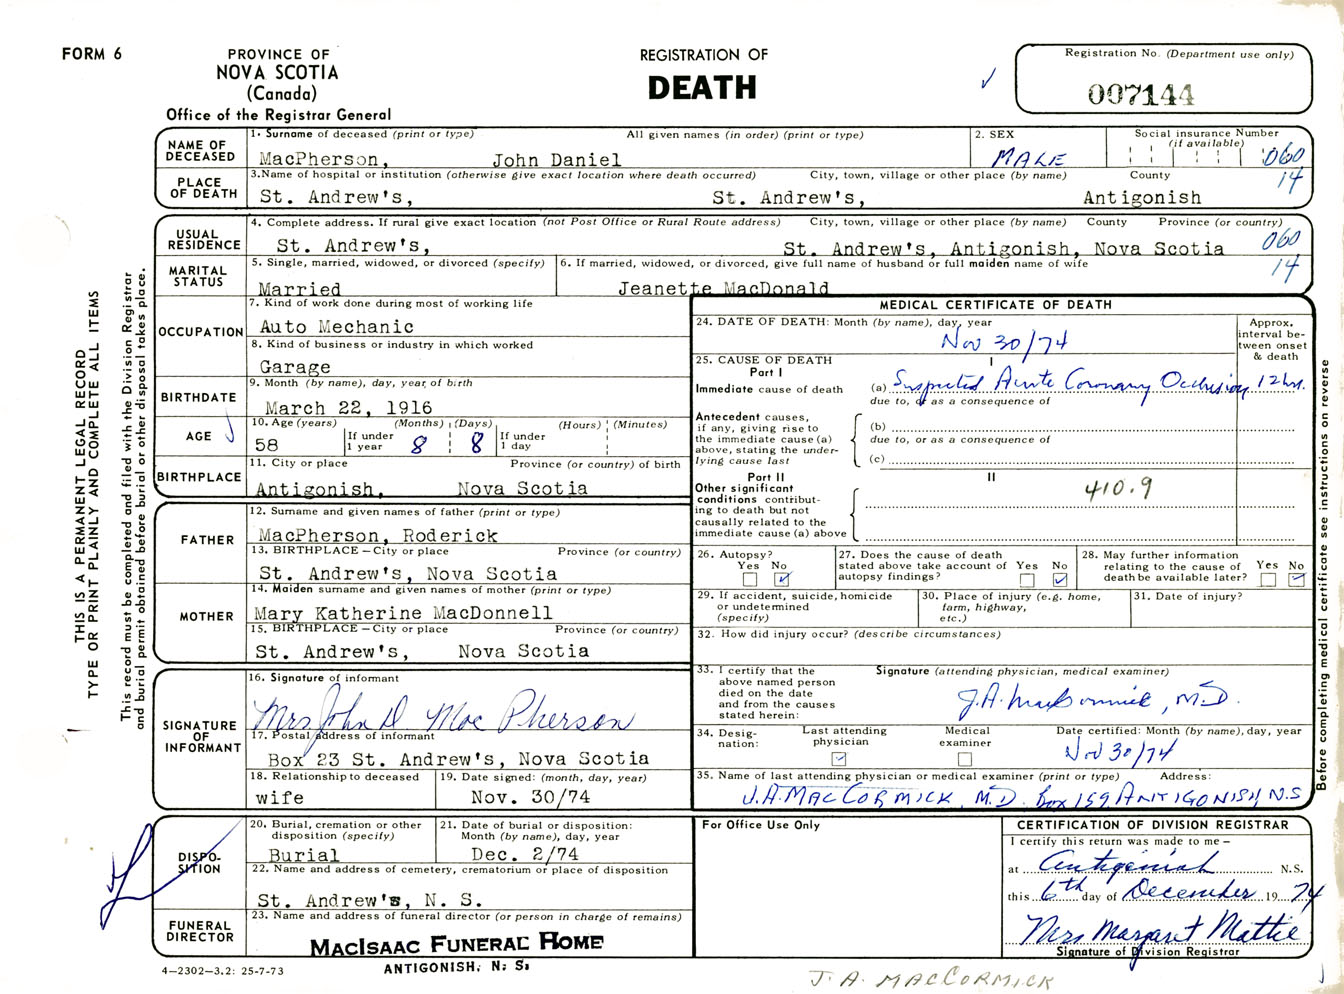 FORM 6
PROVINCE OF
NOVA SCOTIA
(Canada)
Office of the Registrar General
REGISTRATION OF
DEATH
Registration No. (Department use only)
007144
NAME OF DECEASED
1. Surname of deceased (print or type) All given names (in order) (print or type)
MacPherson, John Daniel
2. SEX
MALE
Social insurance Number
(if available)
060
14
PLACE OF DEATH
3. Name of hospital or institution (otherwise give exact location where death occurred) City, town, village or other place (by name) County
St. Andrew's, St. Andrew's, Antigonish
USUAL RESIDENCE
4. Complete address. If rural give exact location (not Post Office or Rural Route address) City, town, village or other place (by name) County Province (or country)
St. Andrew's, St. Andrew's, Antigonish, Nova Scotia
060
14
MARITAL STATUS
5. Single, married, widowed, or divorced (specify)
Married
6. If married, widowed, or divorced, give full name of husband or full maiden name of wife
Jeanette MacDonald
OCCUPATION
7. Kind of work done during most of working life
Auto Mechanic
8. Kind of business or industry in which worked
Garage
BIRTHDATE
9. Month (by name), day, year, of birth
March 22, 1916
AGE
10. Age (years) (Months) (Days) (Hours) (Minutes)
58 If under 1 year 8 8 If under 1 day
BIRTHPLACE
11. City or place Province (or country) of birth
Antigonish, Nova Scotia
FATHER
12. Surname and given names of father (print or type)
MacPherson, Roderick
13. BIRTHPLACE – City or place Province (or country)
St. Andrew's, Nova Scotia
MOTHER
14. Maiden surname and given names of mother (print or type)
Mary Katherine MacDonnell
15. BIRTHPLACE – City or place Province (or country)
St. Andrew's, Nova Scotia
SIGNATURE OF INFORMANT
16. Signature of informant
Mrs John D MacPherson
17. Postal address of informant
Box 23 St. Andrew's, Nova Scotia
18. Relationship to deceased
wife
19. Date signed: (month, day, year)
Nov. 30/74
DISPO-
SITION
20. Burial, cremation or other
disposition (specify)
Burial
21. Date of burial or disposition:
Month (by name), day, year
Dec. 2/74
22. Name and address of cemetery, crematorium or place of disposition
St. Andrew's, N. S.
FUNERAL DIRECTOR
23. Name and address of funeral director (or person in charge of remains)
MACISAAC FUNERAL HOME
ANTIGONISH, N. S.
4–2302–3.2: 25-7-73
MEDICAL CERTIFICATE OF DEATH
24. DATE OF DEATH: Month (by name), day, year
Nov 30/74
Approx. interval be-
tween onset
& death
25. CAUSE OF DEATH
Part I
I
Immediate cause of death
(a) Suspected Acute Coronary Occlusion 12 hrs.
due to, or as a consequence of
Antecedent causes,
if any, giving rise to
the immediate cause (a)
above, stating the under-
lying cause last
(b)
due to, or as a consequence of
(c)
Part II
II
Other significant
conditions contribut-
ing to death but not
causally related to the
immediate cause (a) above
410.9
26. Autopsy?
Yes No
27. Does the cause of death
stated above take account of
autopsy findings?
Yes No
28. May further information
relating to the cause of
death be available later?
Yes No
29. If accident, suicide, homicide
or undetermined
(specify)
30. Place of injury (e.g. home,
farm, highway,
etc.)
31. Date of injury?
32. How did injury occur? (describe circumstances)
33. I certify that the
above named person
died on the date
and from the causes
stated herein:
Signature (attending physician, medical examiner)
J.A. MacCormick, M.D.
34. Desig-
nation:
Last attending
physician
Medical
examiner
Date certified: Month (by name), day, year
Nov 30/74
35. Name of last attending physician or medical examiner (print or type) Address:
J.A. MACCORMICK, M.D. Box 159, ANTIGONISH, N.S
For Office Use Only
CERTIFICATION OF DIVISION REGISTRAR
I certify this return was made to me –
at Antigonish N.S.
this 6th day of December 19 74
Mrs Margaret Mattie
Signature of Division Registrar
J. A. MACCORMICK
THIS IS A PERMANENT LEGAL RECORD
TYPE OR PRINT PLAINLY AND COMPLETE ALL ITEMS
This record must be completed and filed with the Division Registrar
and burial permit obtained before burial or other disposal takes place.
Before completing medical certificate see instructions on reverse